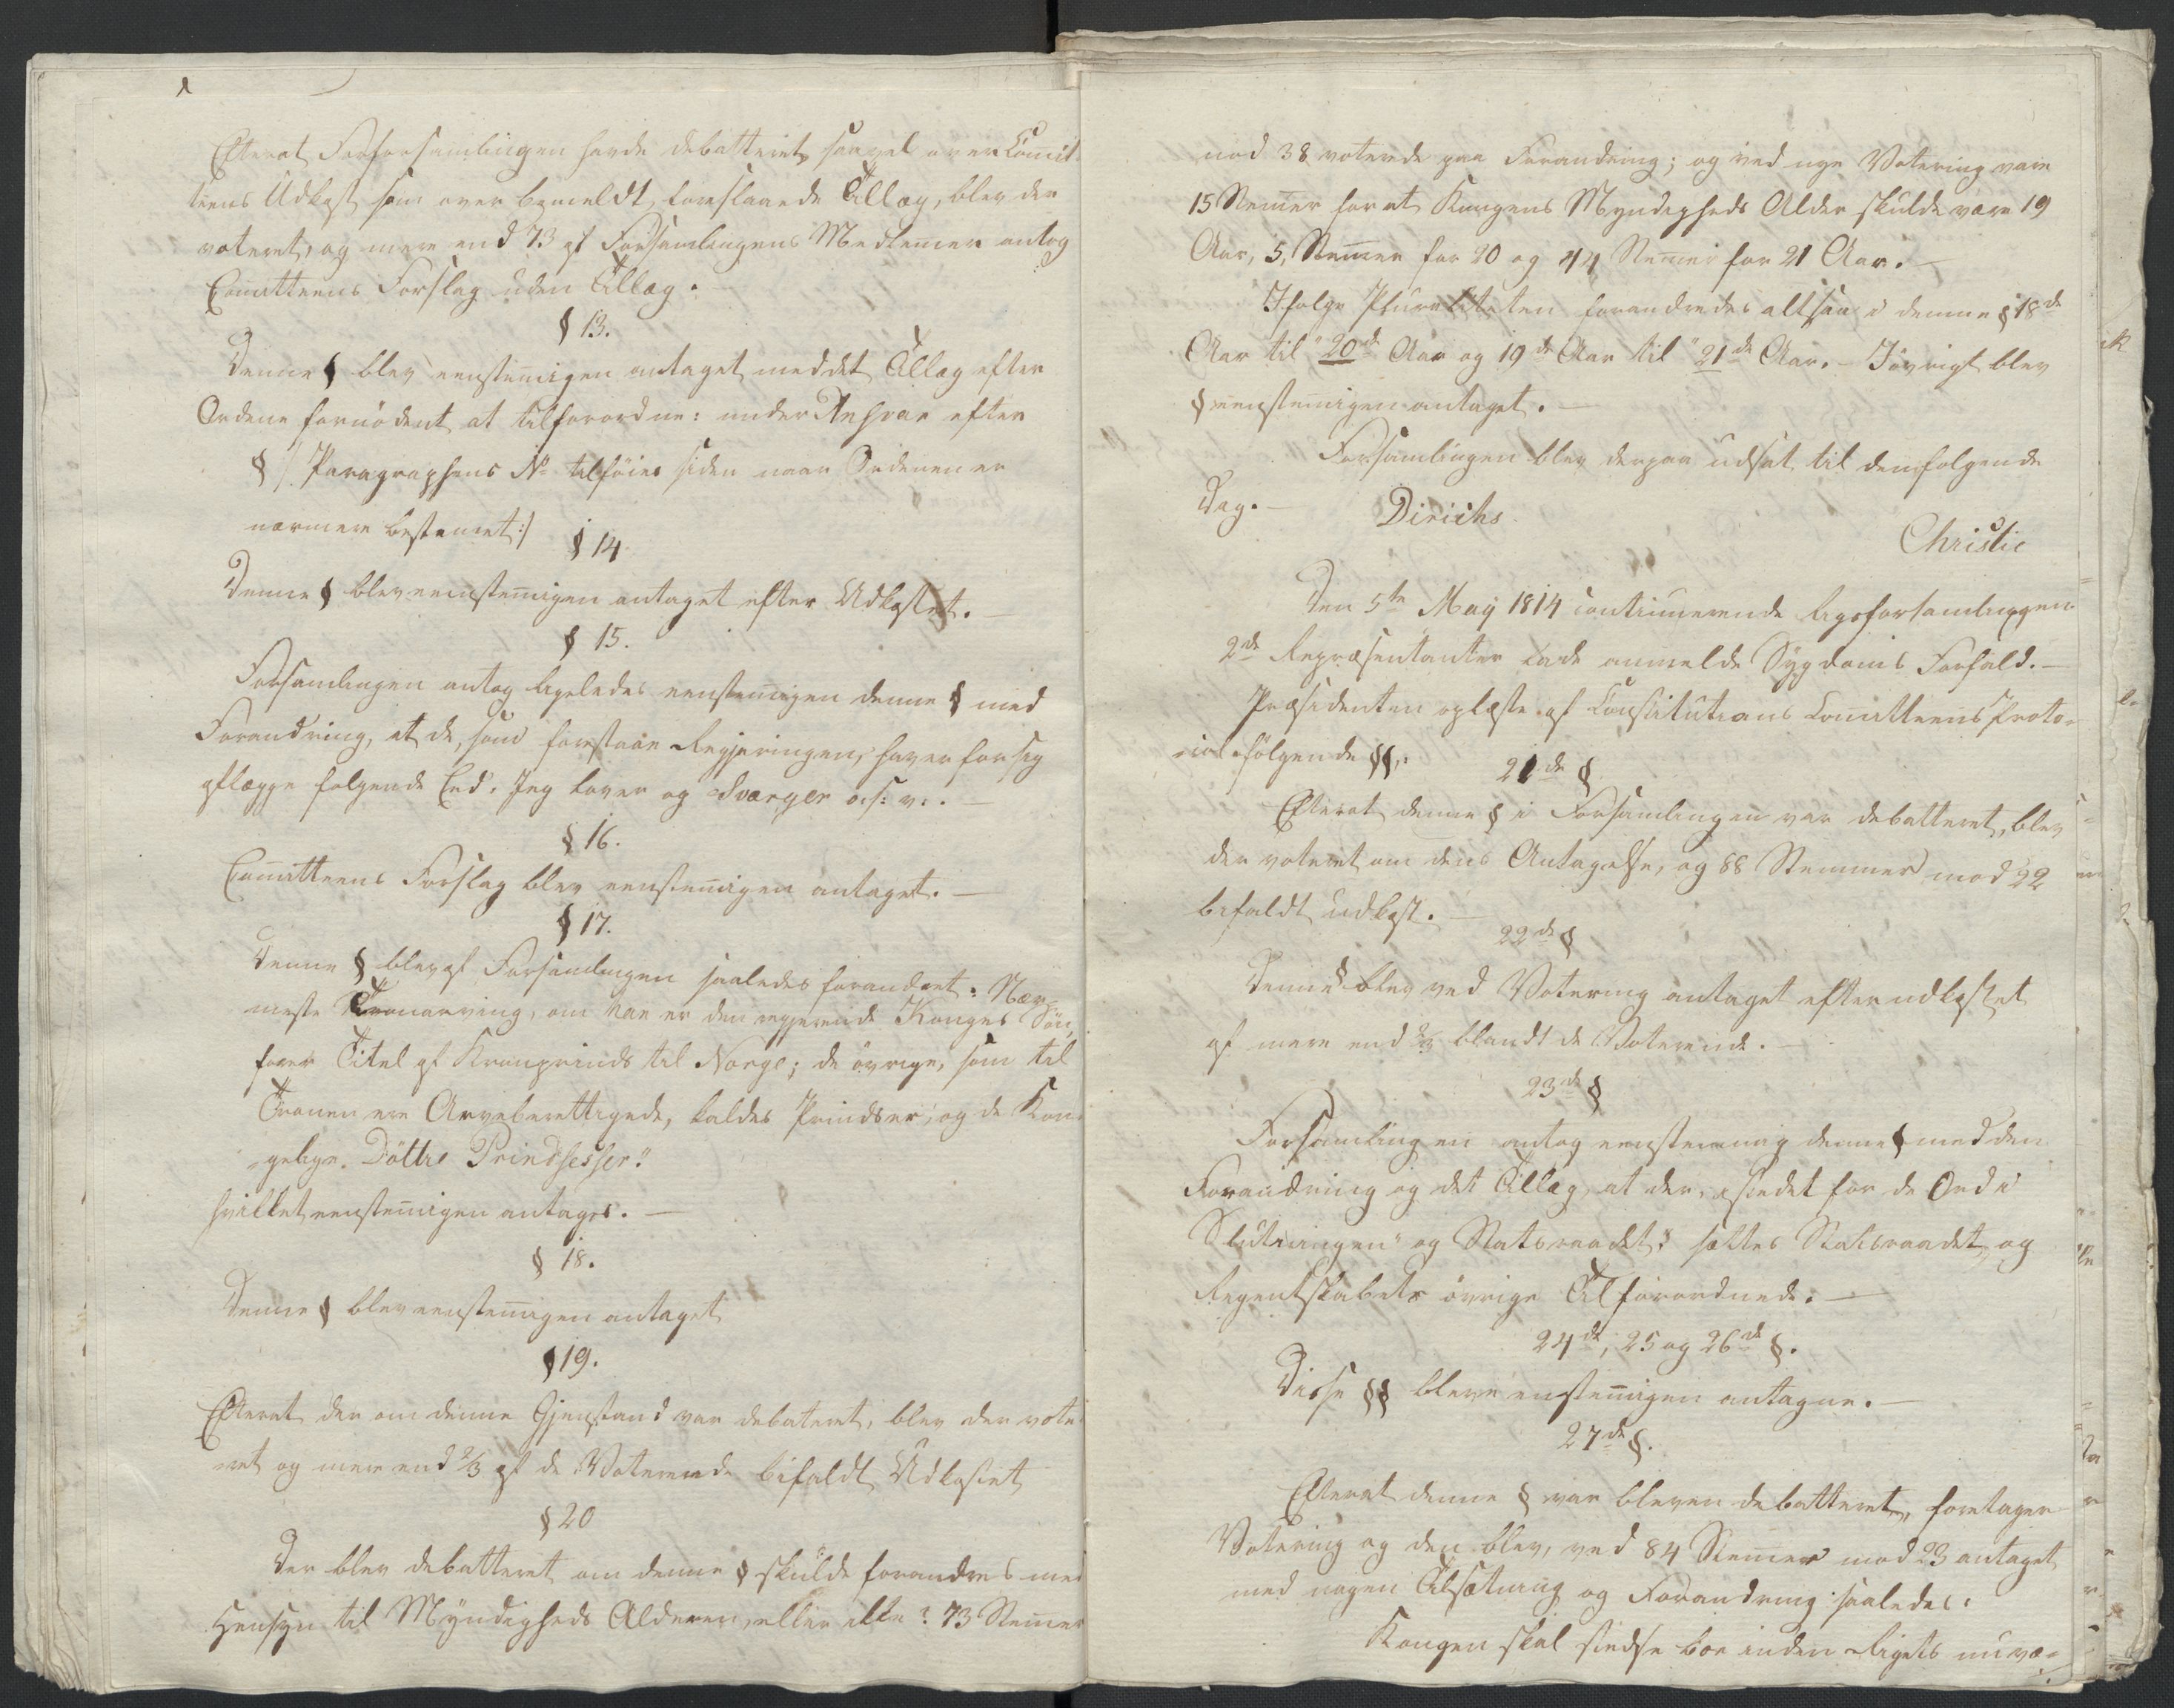 Efterat Forsamlingen havde debatteret saavel over Comit-
teens Udkast som over bemeldt foreslaaede Tillæg, blev der
voteret, og mere end 73 af Forsamlingens Medlemer antog
Comitteens Forslag uden Tillæg. —
§ 13.
Denne § blev eenstemigen antaget med det Tillæg efter
Ordene fornödent at tilforordne: under Ansvar efter
§ /: Paragraphens No tilföies siden naar Ordenen er
nærmere bestemt :/
§ 14
Denne § blev eenstemigen antaget efter Udkastet. —
§ 15.
Forsamlingen antog ligeledes eenstemigen denne § med
Forandring, at de, som forestaae Regjeringen, haver for sig
aflægge følgende Eed: Jeg lover og Sværger o: s: v: . —
§ 16.
Comitteens Forslag blev eenstemigen antaget. —
§ 17.
Denne § blev af Forsamlingen saaledes forandret: Nær-
meste Tronarving, om han er den regjerende Konges Sön,
fører Titel af Kronprinds til Norge; de övrige, som til
Tronen ere Arveberettigede, kaldes Prindser; og de Kon-
gelige Döttre Prindsesser."
hvilket eenstemigen antages. —
§ 18.
Denne § blev eenstemigen antaget
§ 19.
Efterat der om denne Gjenstand var debateret, blev der vote-
ret og mere end 2/3 af de Voterende bifaldt Udkastet
§ 20
Der blev debatteret om denne § skulde forandres med
Hensyn til Myndigheds Alderen, eller ikke? 73 Stemer
mod 38 voterede paa Forandring; og ved nye Votering vare
15 Stemer for at Kongens Myndigheds Alder skulde være 19
Aar, 5, Stemer for 20 og 44 Stemer for 21 Aar. —
Ifølge Pluraliteten forandredes altsaa i denne § 18de
Aar til "20de Aar og 19de Aar til "21de Aar. — Iövrigt blev
§ eenstemigen antaget. —
Forsamlingen blev derpaa udsat til den følgende
Dag. —
Diriks.
Christie
Den 5te Maÿ 1814 continuerende Rigsforsamlingen
2de Repræsentanter lode anmelde Sygdoms Forfald. —
Præsidenten oplæste af Constitutions Comitteens Proto-
col følgende §§,:
21de §
Efterat denne § i Forsamlingen var debatteret, blev
der voteret om dens Antagelse, og 88 Stemmer mod 22
bifaldt udkast. —
22de §
Denne § blev ved Votering antaget efter udkastet
af mere end 2/3 blandt de Voterende. —
23de §
Forsamlingen antog eenstemmig denne § med den
Forandring og det Tillæg, at der, istedet for de Ord i
Slutningen "og Statsraadet" sættes Statsraadet og
Regentskabets övrige Tilforordnede. —
24de, 25 og 26de §.
Disse §§ bleve eenstemigen antagne. —
27de §.
Efterat denne § var bleven debatteret, foretages
Votering og den blev, ved 84 Stemer mod 23 antaget
med nogen Tilsætning og Forandring saaledes:
Kongen skal stedse boe inden Rigets nuvæ-